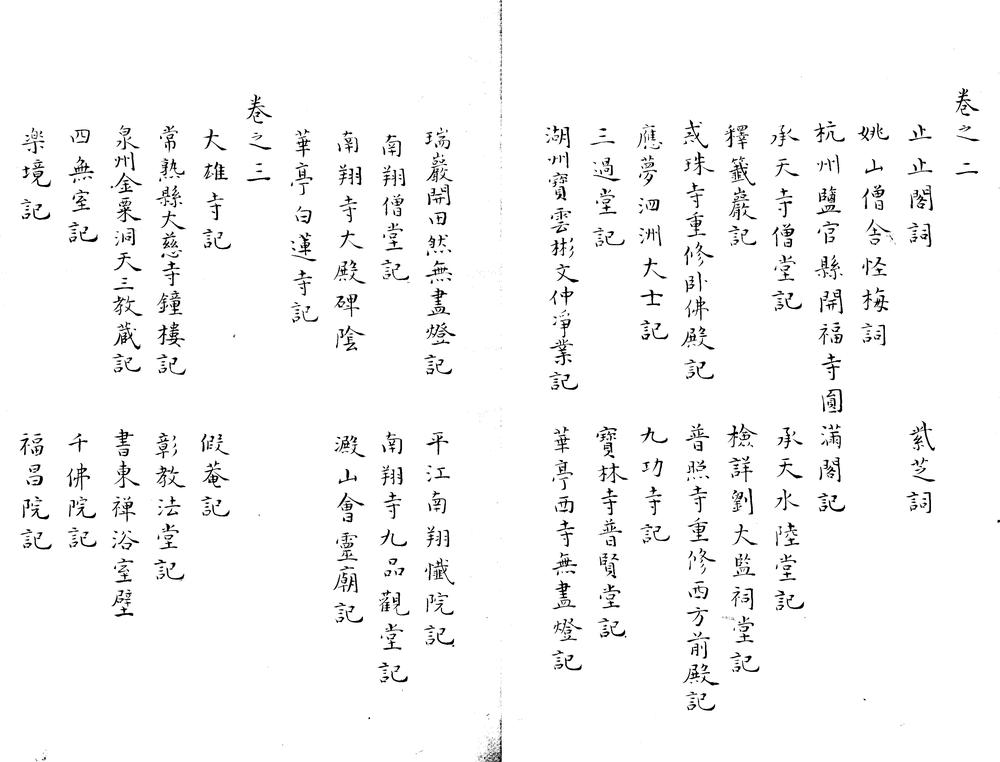 卷之二
止止閣詞 紫芝詞
姚山僧舎怪梅詞
杭州鹽官縣開福寺圓滿閣記
承天寺僧堂記 承天水陸堂記
釋籤巖記 檢詳劉大監祠堂記
惑珠寺重修卧佛殿記 普照寺重修西方前殿記
應夢泗洲大士記 九功寺記
三過堂記 寶林寺普賢堂記
湖州寶雲彬文仲淨業記 華亭西寺無盡燈記
瑞巖開田然無盡燈記 平江南翔懺院記
南翔僧堂記 南翔寺九品觀堂記
南翔寺大殿碑陰 澱山會靈廟記
華亭白蓮寺記
卷之三
大雄寺記 假菴記
常熟縣大慈寺鐘樓記 彰教法堂記
泉州金粟洞天三教蔵記 書東禅浴室壁
四無室記 千佛院記
楽境記 福昌院記